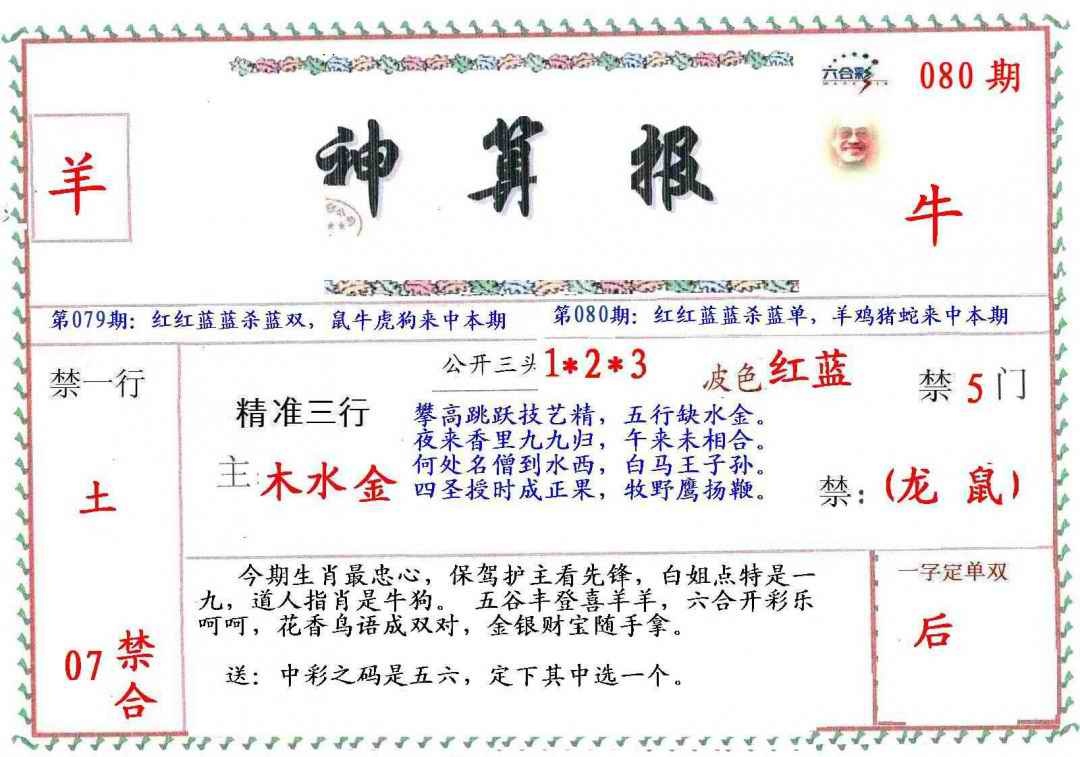 六合彩
080 期
羊
神算报
牛
第079期：红红蓝蓝杀蓝双，鼠牛虎狗来中本期
第080期：红红蓝蓝杀蓝单，羊鸡猪蛇来中本期
禁一行
土
07 禁合
公开三头 1*2*3
波色 红蓝
禁 5 门
精准三行
主：木水金
攀高跳跃技艺精，五行缺水金。
夜来香里九九归，午来未相合。
何处名僧到水西，白马王子孙。
四圣授时成正果，牧野鹰扬鞭。
禁：(龙 鼠)
今期生肖最忠心，保驾护主看先锋，白姐点特是一
九，道人指肖是牛狗。 五谷丰登喜羊羊，六合开彩乐
呵呵，花香鸟语成双对，金银财宝随手拿。
送：中彩之码是五六，定下其中选一个。
一字定单双
后